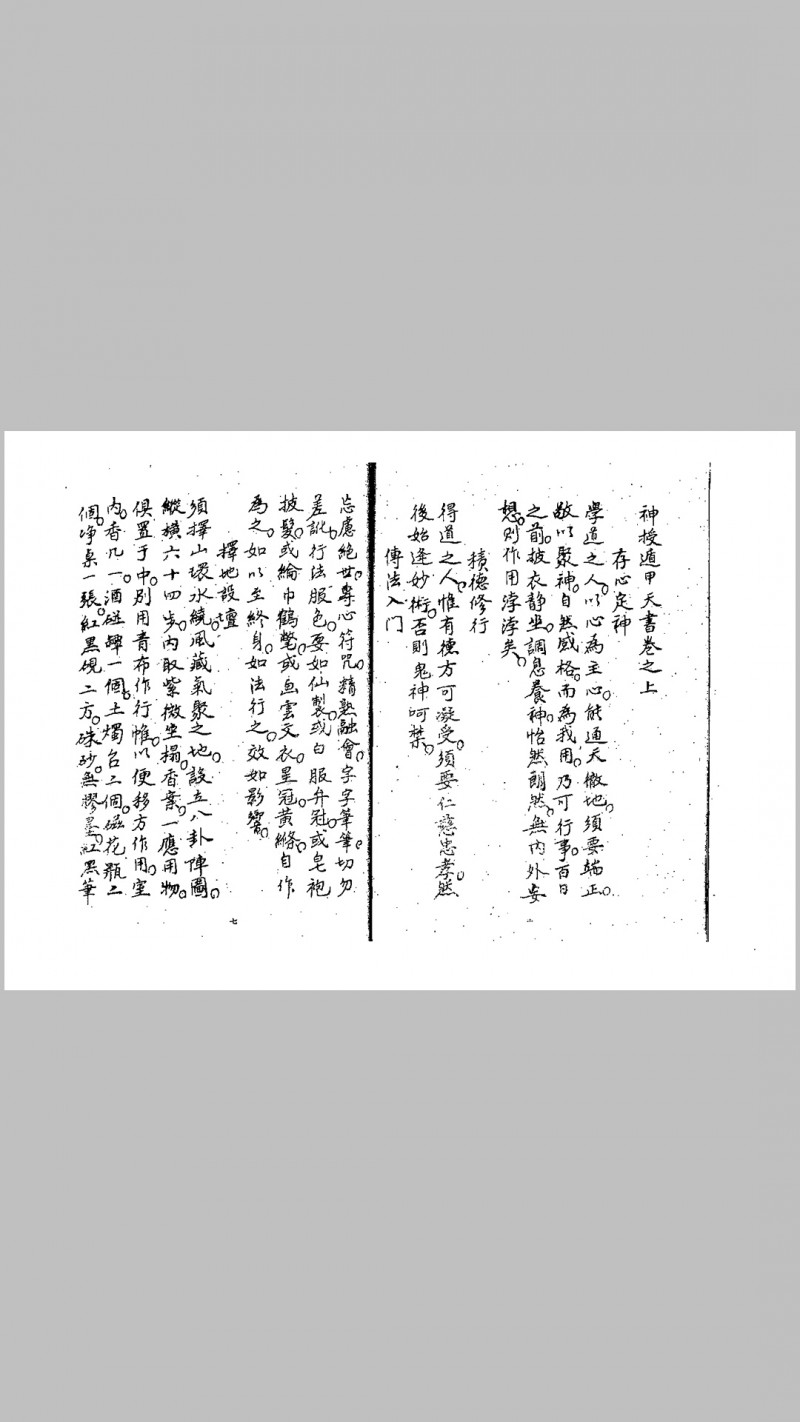 神授遁甲天書卷之上
存心定神
學道之人以心為主心能通天徹地須要端正
敬以聚神自然感格而為我用乃可行事百日
之前披衣靜坐調息養神怡然朗然無內外妄
想則作用浡浡矣
積德修行
得道之人惟有德方可凝受須要仁慈忠孝然
後始逢妙術否則鬼神呵禁
傳法入门
忘慮絕世專心符咒精熟融會字字筆筆切勿
差訛行法服色要如仙製或白服弁冠或皂袍
披髮或綸巾鶴氅或血雲文衣星冠黃縧自作
為之如以至終身如法行之效如影響
擇地設壇
須擇山環水繞風藏氣聚之地設立八卦陣圖
縱橫六十四步內取紫微坐榻香案一應用物
俱置于中別用青布作行帷以便移方作用室
內香几一酒磁罈一個土燭台二個磁花瓶二
個净桌一張紅黑硯二方硃砂無膠墨紅黑筆
七